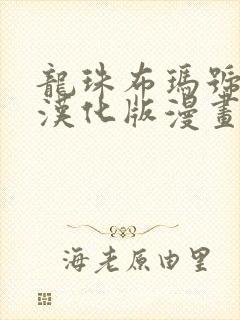 龍珠布瑪號
漢化版漫畫
海老原由里